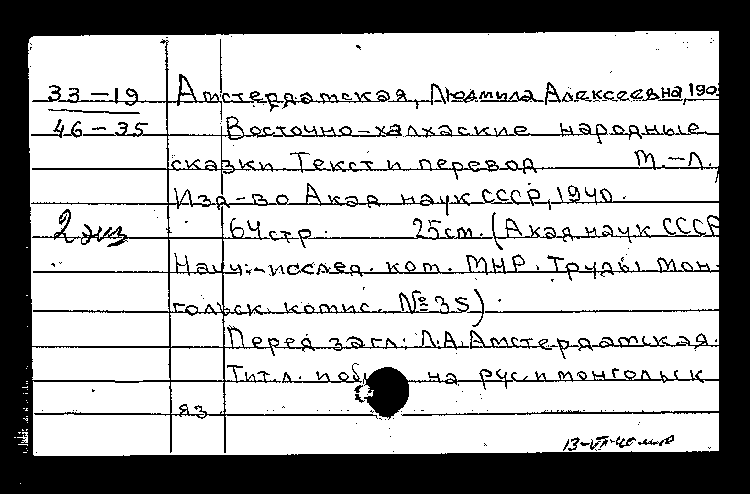 33-19
46-35
2 экз
Амстердамская, Людмила Алексеевна, 190
Восточно-халхаские народные
сказки. Текст и перевод. М.-Л.,
Изд-во Акад наук СССР, 1940.
64 стр. 25см. (Акад. наук СССР
Науч.-исслед. ком. МНР. Труды мон-
гольск. комис. №35).
Перед загл: Л.А. Амстердамская.
Тит.л. на рус. и монгольск
яз